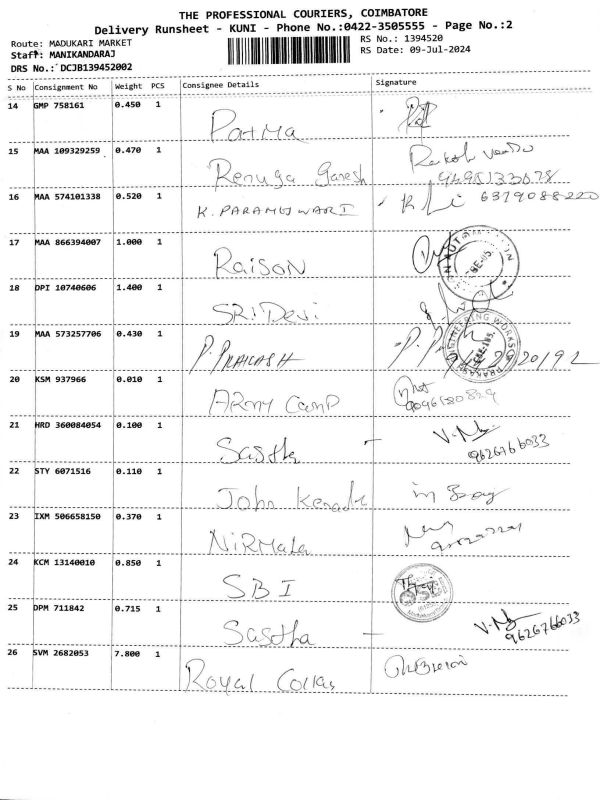 THE PROFESSIONAL COURIERS, COIMBATORE
Delivery Runsheet - KUNI - Phone No.:0422-3505555 - Page No.:2
Route: MADUKARI MARKET RS No.: 1394520
Staff: MANIKANDARAJ RS Date: 09-Jul-2024
DRS No.: DCJB139452002
S No Consignment No Weight PCS Consignee Details Signature
14 GMP 758161 0.450 1 Patma
15 MAA 109329259 0.470 1 Renuga Ganesh Rakesh
16 MAA 574101338 0.520 1 K. PARAMESWARI 6379088220
17 MAA 866394007 1.000 1 Raison
18 DPI 10740606 1.400 1 SRi Devi
19 MAA 573257706 0.430 1 P. PRAKASH
ENGINEERING WORKS
PRAKASH
20 KSM 937966 0.010 1 ARmy Camp
21 HRD 360084054 0.100 1 Sastha - 9626766033
22 STY 6071516 0.110 1 John
23 IXM 506658150 0.370 1 NiRMala
24 KCM 13140010 0.850 1 SBI
25 DPM 711842 0.715 1 Sastha - 9626766033
26 SVM 2682053 7.800 1 Royal